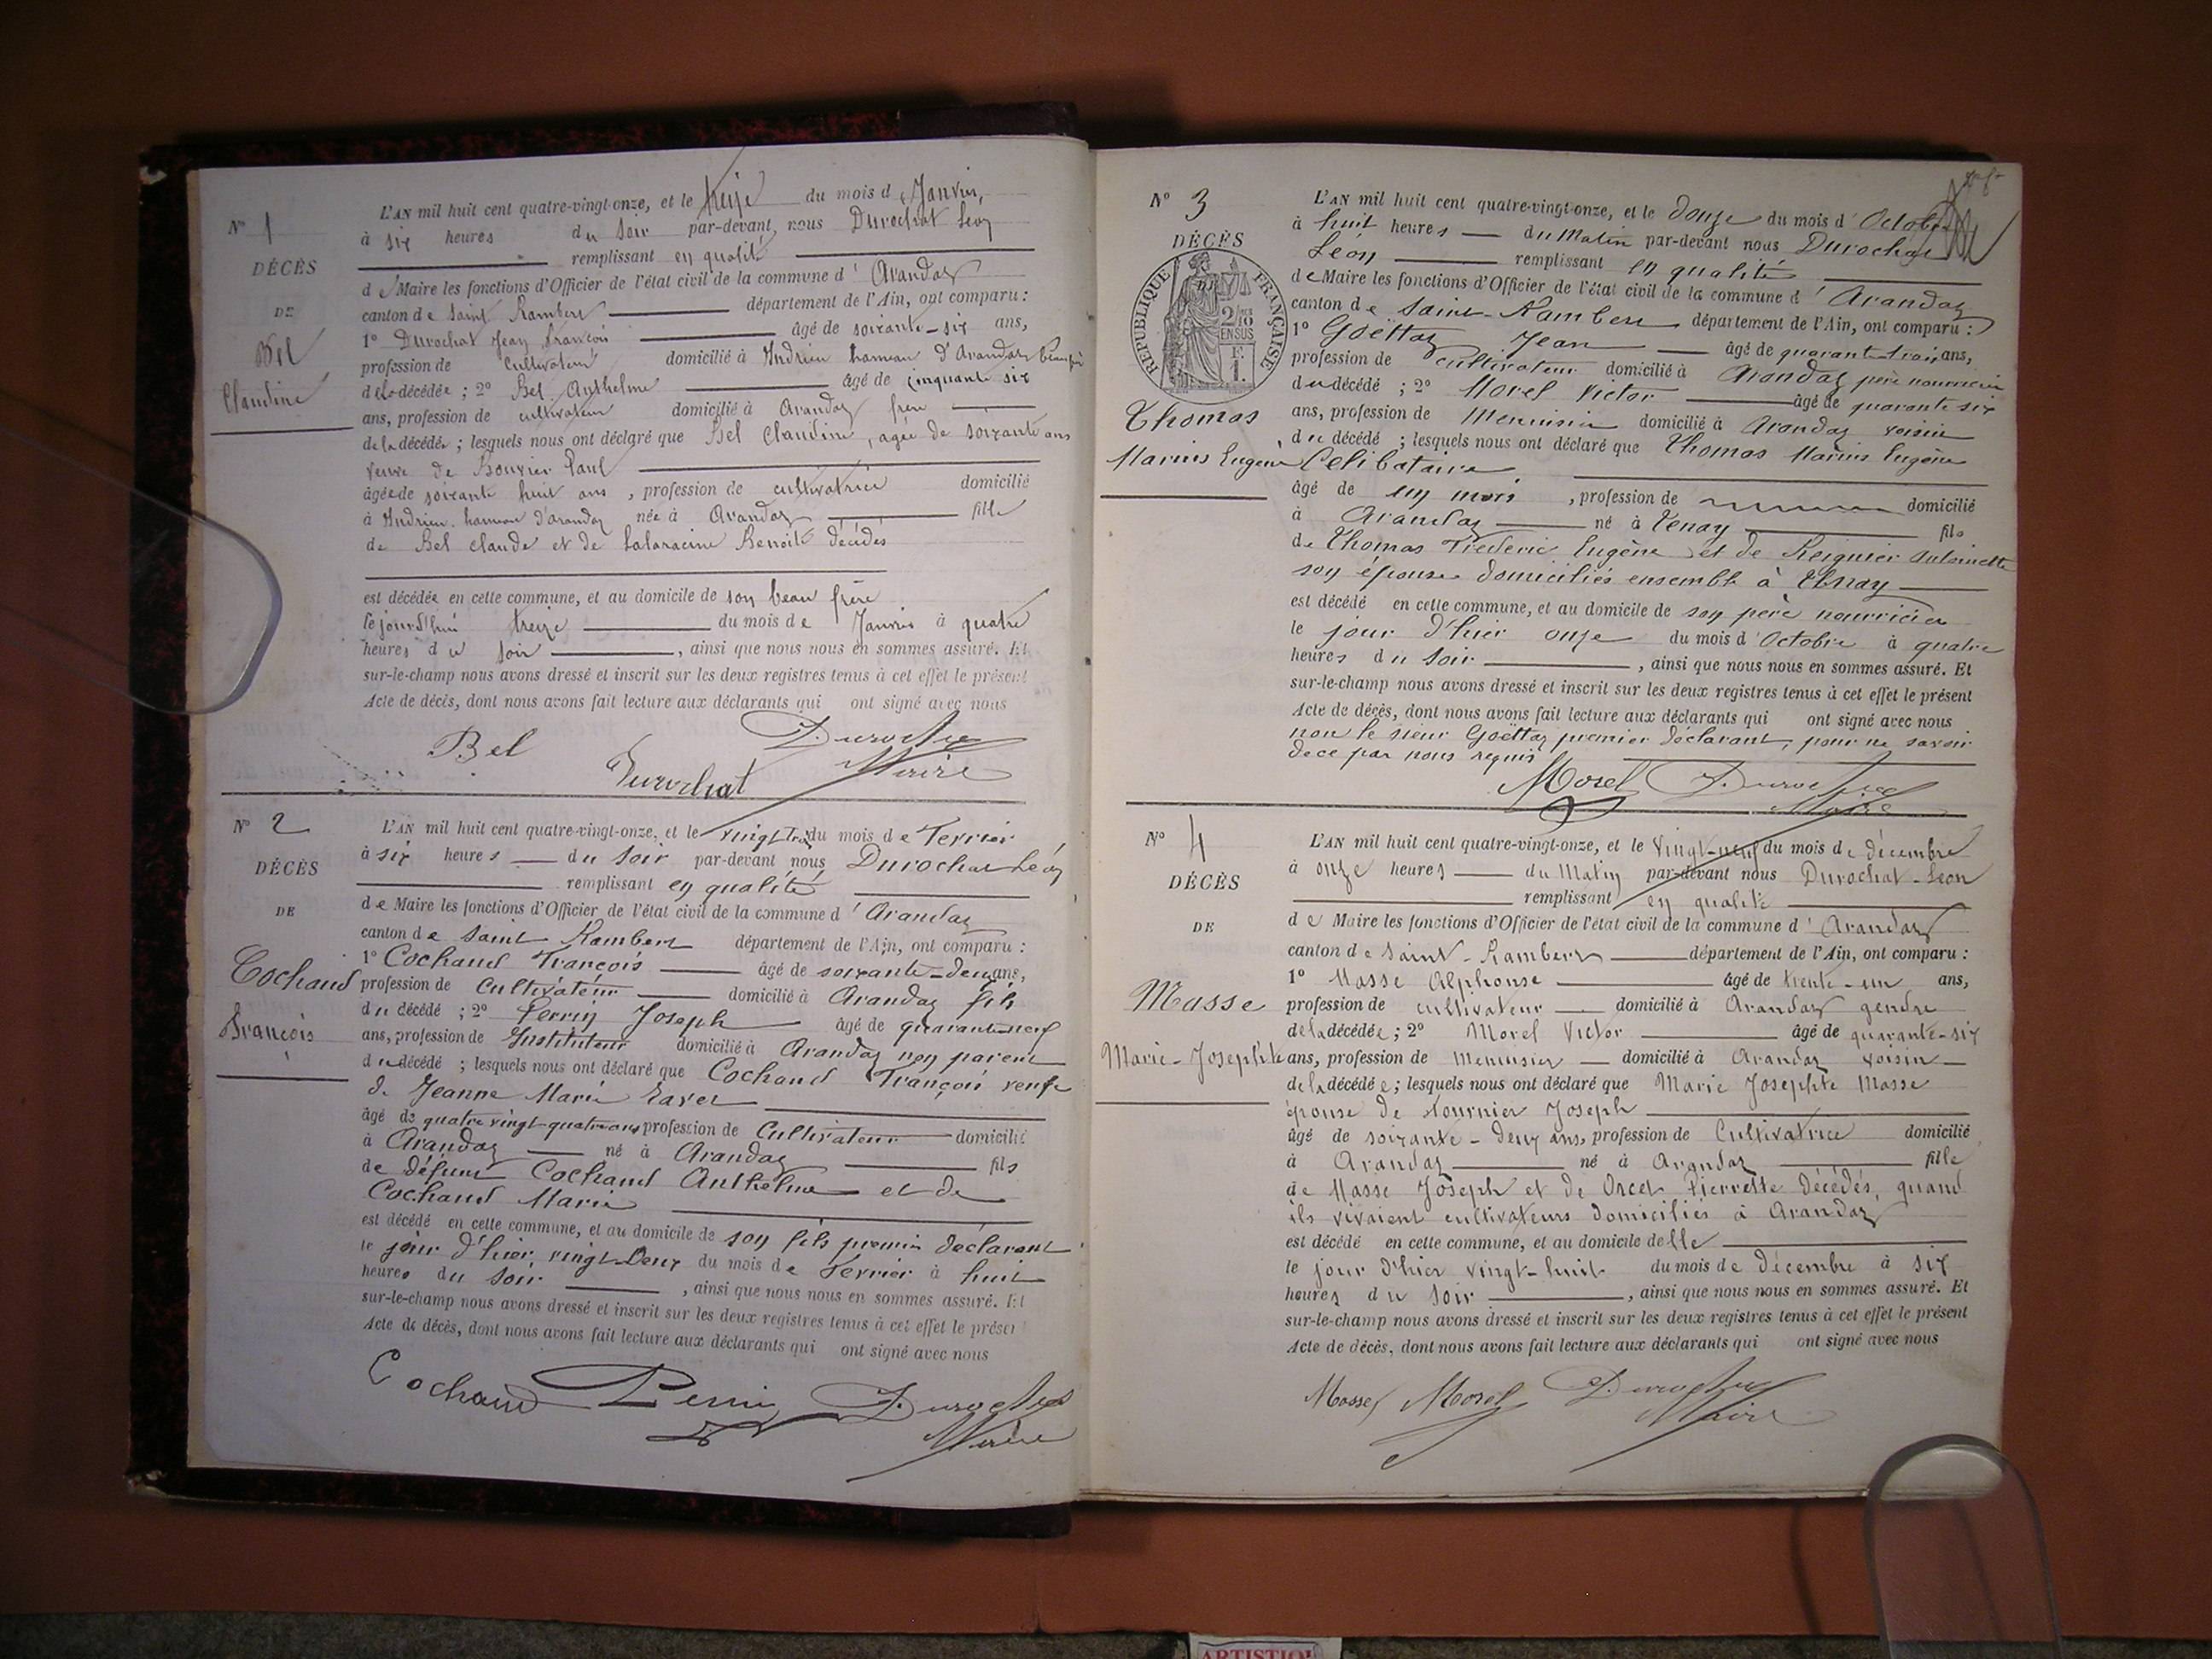 N° 1
DÉCÈS
DE
Bel
Claudine
L'AN mil huit cent quatre-vingt-onze, et le treize du mois de Janvier,
à six heures du soir par-devant nous Durochat Léon
remplissant en qualité
de Maire les fonctions d'Officier de l'état civil de la commune d'Arandaz
canton de Saint Rambert département de l'Ain, ont comparu :
1° Durochat Jean François âgé de soixante-six ans,
profession de cultivateur domicilié à Indrieu hameau d'Arandaz beau frère
de la décédée ; 2° Bel Anthelme âgé de cinquante six
ans, profession de cultivateur domicilié à Arandaz frère
de la décédée ; lesquels nous ont déclaré que Bel Claudine, agée de soixante ans
veuve de Bouvier Paul
âgée de soixante huit ans, profession de cultivatrice domicilié
à Indrieu hameau d'arandaz née à Arandaz fille
de Bel Claude et de Benoite décédés
est décédée en cette commune, et au domicile de son beau frère
le jourd'hui treize du mois de Janvier à quatre
heures du soir, ainsi que nous nous en sommes assuré. Et
sur-le-champ nous avons dressé et inscrit sur les deux registres tenus à cet effet le présent
Acte de décès, dont nous avons fait lecture aux déclarants qui ont signé avec nous
Bel Durochat Durochat
Maire
N° 2
DÉCÈS
DE
Cochaud
François
L'AN mil huit cent quatre-vingt-onze, et le vingt trois du mois de Fevrier
à six heures du soir par-devant nous Durochat Léon
remplissant en qualité
de Maire les fonctions d'Officier de l'état civil de la commune d'Arandaz
canton de Saint Rambert département de l'Ain, ont comparu :
1° Cochaud François âgé de soixante-deux ans,
profession de Cultivateur domicilié à Arandaz fils
du décédé ; 2° Perrin Joseph âgé de quarante neuf
ans, profession de Instituteur domicilié à Arandaz non parent
du décédé ; lesquels nous ont déclaré que Cochaud François veuf
de Jeanne Marie Ravet
âgé de quatre vingt-quatre ans profession de Cultivateur domicilié
à Arandaz né à Arandaz fils
de défunt Cochaud Anthelme et de
Cochaud Marie
est décédé en cette commune, et au domicile de son fils premier déclarant
le jour d'hier, vingt-Deux du mois de Fevrier à huit
heures du soir, ainsi que nous nous en sommes assuré. Et
sur-le-champ nous avons dressé et inscrit sur les deux registres tenus à cet effet le présent
Acte de décès, dont nous avons fait lecture aux déclarants qui ont signé avec nous
Cochaud Perrin Durochat
Maire
N° 3
DÉCÈS
RÉPUBLIQUE FRANÇAISE
2/10
EN SUS
F.
1.
Thomas
Marius Eugène
L'AN mil huit cent quatre-vingt-onze, et le Douze du mois d'Octobre
à huit heures du Matin par-devant nous Durochat
Léon remplissant en qualité
de Maire les fonctions d'Officier de l'état civil de la commune d'Arandaz
canton de Saint-Rambert département de l'Ain, ont comparu :
1° Goëttaz Jean âgé de quarante trois ans,
profession de cultivateur domicilié à Arandaz père nourricier
du décédé ; 2° Morel Victor âgé de quarante six
ans, profession de Menuisier domicilié à Arandaz voisin
du décédé ; lesquels nous ont déclaré que Thomas Marius Eugène
Celibataire
âgé de un mois, profession de domicilié
à Arandaz né à Tenay fils
de Thomas Frederic Eugène et de Reignier Antoinette
son épouse domiciliés ensemble à Tenay
est décédé en cette commune, et au domicile de son père nourricier
le jour d'hier onze du mois d'Octobre à quatre
heures du soir, ainsi que nous nous en sommes assuré. Et
sur-le-champ nous avons dressé et inscrit sur les deux registres tenus à cet effet le présent
Acte de décès, dont nous avons fait lecture aux déclarants qui ont signé avec nous
non le sieur Goëttaz premier déclarant, pour ne savoir
de ce par nous requis
Morel Durochat
Maire
N° 4
DÉCÈS
DE
Masse
Marie-Josephte
L'AN mil huit cent quatre-vingt-onze, et le vingt-neuf du mois de décembre
à onze heures du Matin par-devant nous Durochat-Léon
remplissant en qualité
de Maire les fonctions d'Officier de l'état civil de la commune d'Arandaz
canton de Saint-Rambert département de l'Ain, ont comparu :
1° Masse Alphonse âgé de trente-un ans,
profession de cultivateur domicilié à Arandaz gendre
de la décédée ; 2° Morel Victor âgé de quarante-six
ans, profession de menuisier domicilié à Arandaz voisin
de la décédée ; lesquels nous ont déclaré que Marie Josephte Masse
épouse de Tournier Joseph
âgé de soixante-deux ans, profession de Cultivatrice domicilié
à Arandaz né à Arandaz fille
de Masse Joseph et de Orcet Pierrette décédés, quand
ils vivaient cultivateurs domiciliés à Arandaz
est décédé en cette commune, et au domicile delle
le jour d'hier vingt-huit du mois de décembre à six
heures du soir, ainsi que nous nous en sommes assuré. Et
sur-le-champ nous avons dressé et inscrit sur les deux registres tenus à cet effet le présent
Acte de décès, dont nous avons fait lecture aux déclarants qui ont signé avec nous
Masse Morel Durochat
Maire